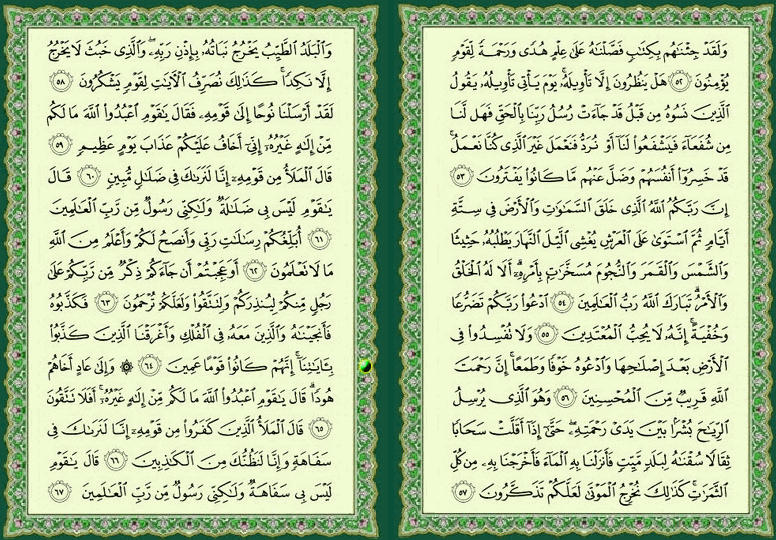 وَلَقَدْ جِئْنَٰهُم بِكِتَٰبٍ فَصَّلْنَٰهُ عَلَىٰ عِلْمٍ هُدًى وَرَحْمَةً لِّقَوْمٍ
يُؤْمِنُونَ ٥٢ هَلْ يَنظُرُونَ إِلَّا تَأْوِيلَهُۥ ۚ يَوْمَ يَأْتِى تَأْوِيلُهُۥ يَقُولُ
ٱلَّذِينَ نَسُوهُ مِن قَبْلُ قَدْ جَآءَتْ رُسُلُ رَبِّنَا بِٱلْحَقِّ فَهَل لَّنَا
مِن شُفَعَآءَ فَيَشْفَعُوا۟ لَنَآ أَوْ نُرَدُّ فَنَعْمَلَ غَيْرَ ٱلَّذِى كُنَّا نَعْمَلُ ۚ
قَدْ خَسِرُوٓا۟ أَنفُسَهُمْ وَضَلَّ عَنْهُم مَّا كَانُوا۟ يَفْتَرُونَ ٥٣
إِنَّ رَبَّكُمُ ٱللَّهُ ٱلَّذِى خَلَقَ ٱلسَّمَٰوَٰتِ وَٱلْأَرْضَ فِى سِتَّةِ
أَيَّامٍ ثُمَّ ٱسْتَوَىٰ عَلَى ٱلْعَرْشِ يُغْشِى ٱلَّيْلَ ٱلنَّهَارَ يَطْلُبُهُۥ حَثِيثًا
وَٱلشَّمْسَ وَٱلْقَمَرَ وَٱلنُّجُومَ مُسَخَّرَٰتٍۭ بِأَمْرِهِۦٓ ۗ أَلَا لَهُ ٱلْخَلْقُ
وَٱلْأَمْرُ ۗ تَبَارَكَ ٱللَّهُ رَبُّ ٱلْعَٰلَمِينَ ٥٤ ٱدْعُوا۟ رَبَّكُمْ تَضَرُّعًا
وَخُفْيَةً ۚ إِنَّهُۥ لَا يُحِبُّ ٱلْمُعْتَدِينَ ٥٥ وَلَا تُفْسِدُوا۟ فِى
ٱلْأَرْضِ بَعْدَ إِصْلَٰحِهَا وَٱدْعُوهُ خَوْفًا وَطَمَعًا ۚ إِنَّ رَحْمَتَ
ٱللَّهِ قَرِيبٌ مِّنَ ٱلْمُحْسِنِينَ ٥٦ وَهُوَ ٱلَّذِى يُرْسِلُ
ٱلرِّيَٰحَ بُشْرًۢا بَيْنَ يَدَىْ رَحْمَتِهِۦ ۖ حَتَّىٰٓ إِذَآ أَقَلَّتْ سَحَابًا
ثِقَالًا سُقْنَٰهُ لِبَلَدٍ مَّيِّتٍ فَأَنزَلْنَا بِهِ ٱلْمَآءَ فَأَخْرَجْنَا بِهِۦ مِن كُلِّ
ٱلثَّمَرَٰتِ ۚ كَذَٰلِكَ نُخْرِجُ ٱلْمَوْتَىٰ لَعَلَّكُمْ تَذَكَّرُونَ ٥٧
وَٱلْبَلَدُ ٱلطَّيِّبُ يَخْرُجُ نَبَاتُهُۥ بِإِذْنِ رَبِّهِۦ ۖ وَٱلَّذِى خَبُثَ لَا يَخْرُجُ
إِلَّا نَكِدًا ۚ كَذَٰلِكَ نُصَرِّفُ ٱلْءَايَٰتِ لِقَوْمٍ يَشْكُرُونَ ٥٨
لَقَدْ أَرْسَلْنَا نُوحًا إِلَىٰ قَوْمِهِۦ فَقَالَ يَٰقَوْمِ ٱعْبُدُوا۟ ٱللَّهَ مَا لَكُم
مِّنْ إِلَٰهٍ غَيْرُهُۥٓ إِنِّىٓ أَخَافُ عَلَيْكُمْ عَذَابَ يَوْمٍ عَظِيمٍ ٥٩
قَالَ ٱلْمَلَأُ مِن قَوْمِهِۦٓ إِنَّا لَنَرَىٰكَ فِى ضَلَٰلٍ مُّبِينٍ ٦٠ قَالَ
يَٰقَوْمِ لَيْسَ بِى ضَلَٰلَةٌ وَلَٰكِنِّى رَسُولٌ مِّن رَّبِّ ٱلْعَٰلَمِينَ
٦١ أُبَلِّغُكُمْ رِسَٰلَٰتِ رَبِّى وَأَنصَحُ لَكُمْ وَأَعْلَمُ مِنَ ٱللَّهِ
مَا لَا تَعْلَمُونَ ٦٢ أَوَعَجِبْتُمْ أَن جَآءَكُمْ ذِكْرٌ مِّن رَّبِّكُمْ عَلَىٰ
رَجُلٍ مِّنكُمْ لِيُنذِرَكُمْ وَلِتَتَّقُوا۟ وَلَعَلَّكُمْ تُرْحَمُونَ ٦٣ فَكَذَّبُوهُ
فَأَنجَيْنَٰهُ وَٱلَّذِينَ مَعَهُۥ فِى ٱلْفُلْكِ وَأَغْرَقْنَا ٱلَّذِينَ كَذَّبُوا۟
بِـَٔايَٰتِنَآ ۚ إِنَّهُمْ كَانُوا۟ قَوْمًا عَمِينَ ٦٤ ۞ وَإِلَىٰ عَادٍ أَخَاهُمْ
هُودًا ۗ قَالَ يَٰقَوْمِ ٱعْبُدُوا۟ ٱللَّهَ مَا لَكُم مِّنْ إِلَٰهٍ غَيْرُهُۥٓ ۚ أَفَلَا تَتَّقُونَ
٦٥ قَالَ ٱلْمَلَأُ ٱلَّذِينَ كَفَرُوا۟ مِن قَوْمِهِۦٓ إِنَّا لَنَرَىٰكَ فِى
سَفَاهَةٍ وَإِنَّا لَنَظُنُّكَ مِنَ ٱلْكَٰذِبِينَ ٦٦ قَالَ يَٰقَوْمِ
لَيْسَ بِى سَفَاهَةٌ وَلَٰكِنِّى رَسُولٌ مِّن رَّبِّ ٱلْعَٰلَمِينَ ٦٧